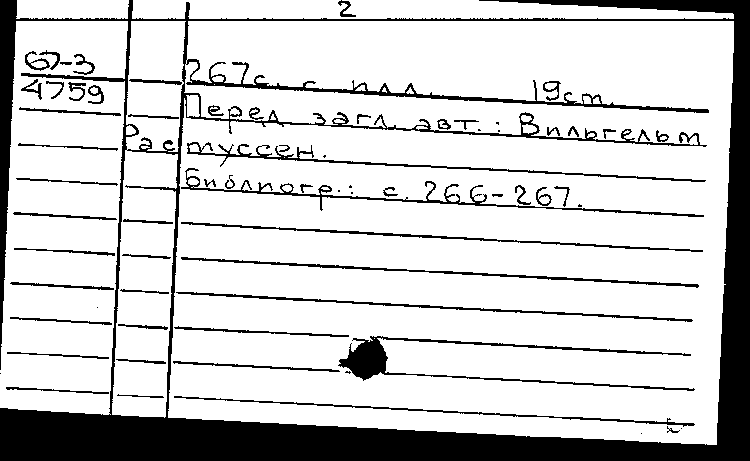 2
67-3
4759
267с. с илл. 19cm.
Перед загл. авт.: Вильгельм
Расмуссен.
Библиогр.: с. 266-267.